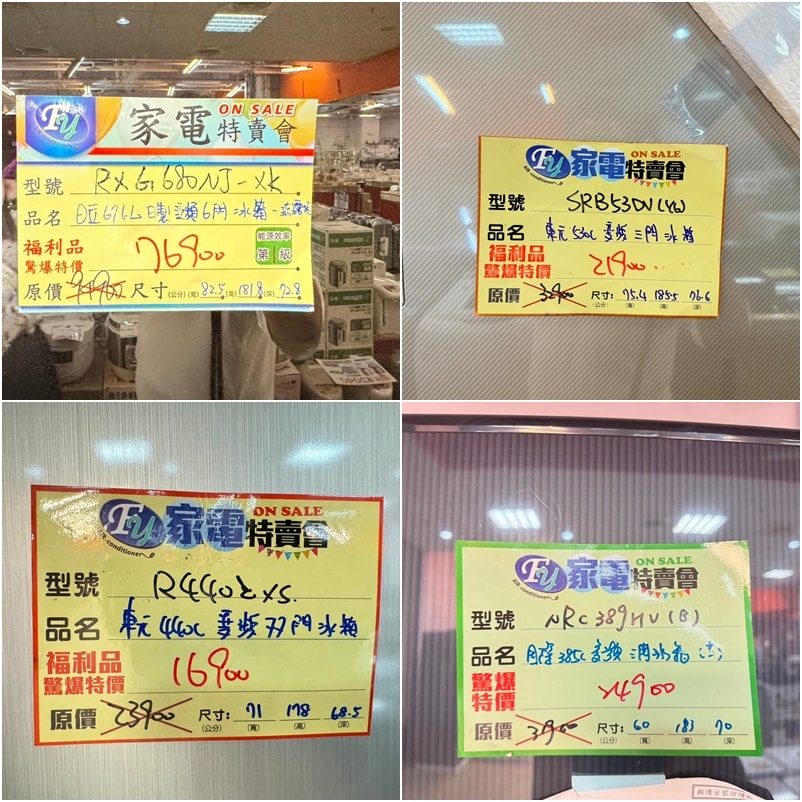 FU 家電特賣會 ON SALE
型號 RXG680NJ-XK
品名 日立676L日製變頻6門冰箱-琉璃
福利品
驚爆特價 76900
能源效率
第1級
原價 尺寸(公分)(寬)82.5(高)181.8(深)72.8
FU 家電特賣會 ON SALE
air conditioner
型號 SRB53DV(YW)
品名 東元 530L 變頻三門冰箱
福利品
驚爆特價 21900
原價 32900 尺寸:(公分) 75.4(寬) 185.5(高) 76.6(深)
FU 家電特賣會 ON SALE
air-conditioner
型號 R4402XS
品名 東元 440L 變頻雙門冰箱
福利品
驚爆特價 16900
原價 23900 尺寸:(公分) 71(寬) 178(高) 68.5(深)
FU 家電特賣會 ON SALE
air conditioner
型號 NRC389HV(B)
品名 385L變頻三門冰箱
驚爆
特價 24900
原價 尺寸:(公分) 60(寬) 183(高) 70(深)